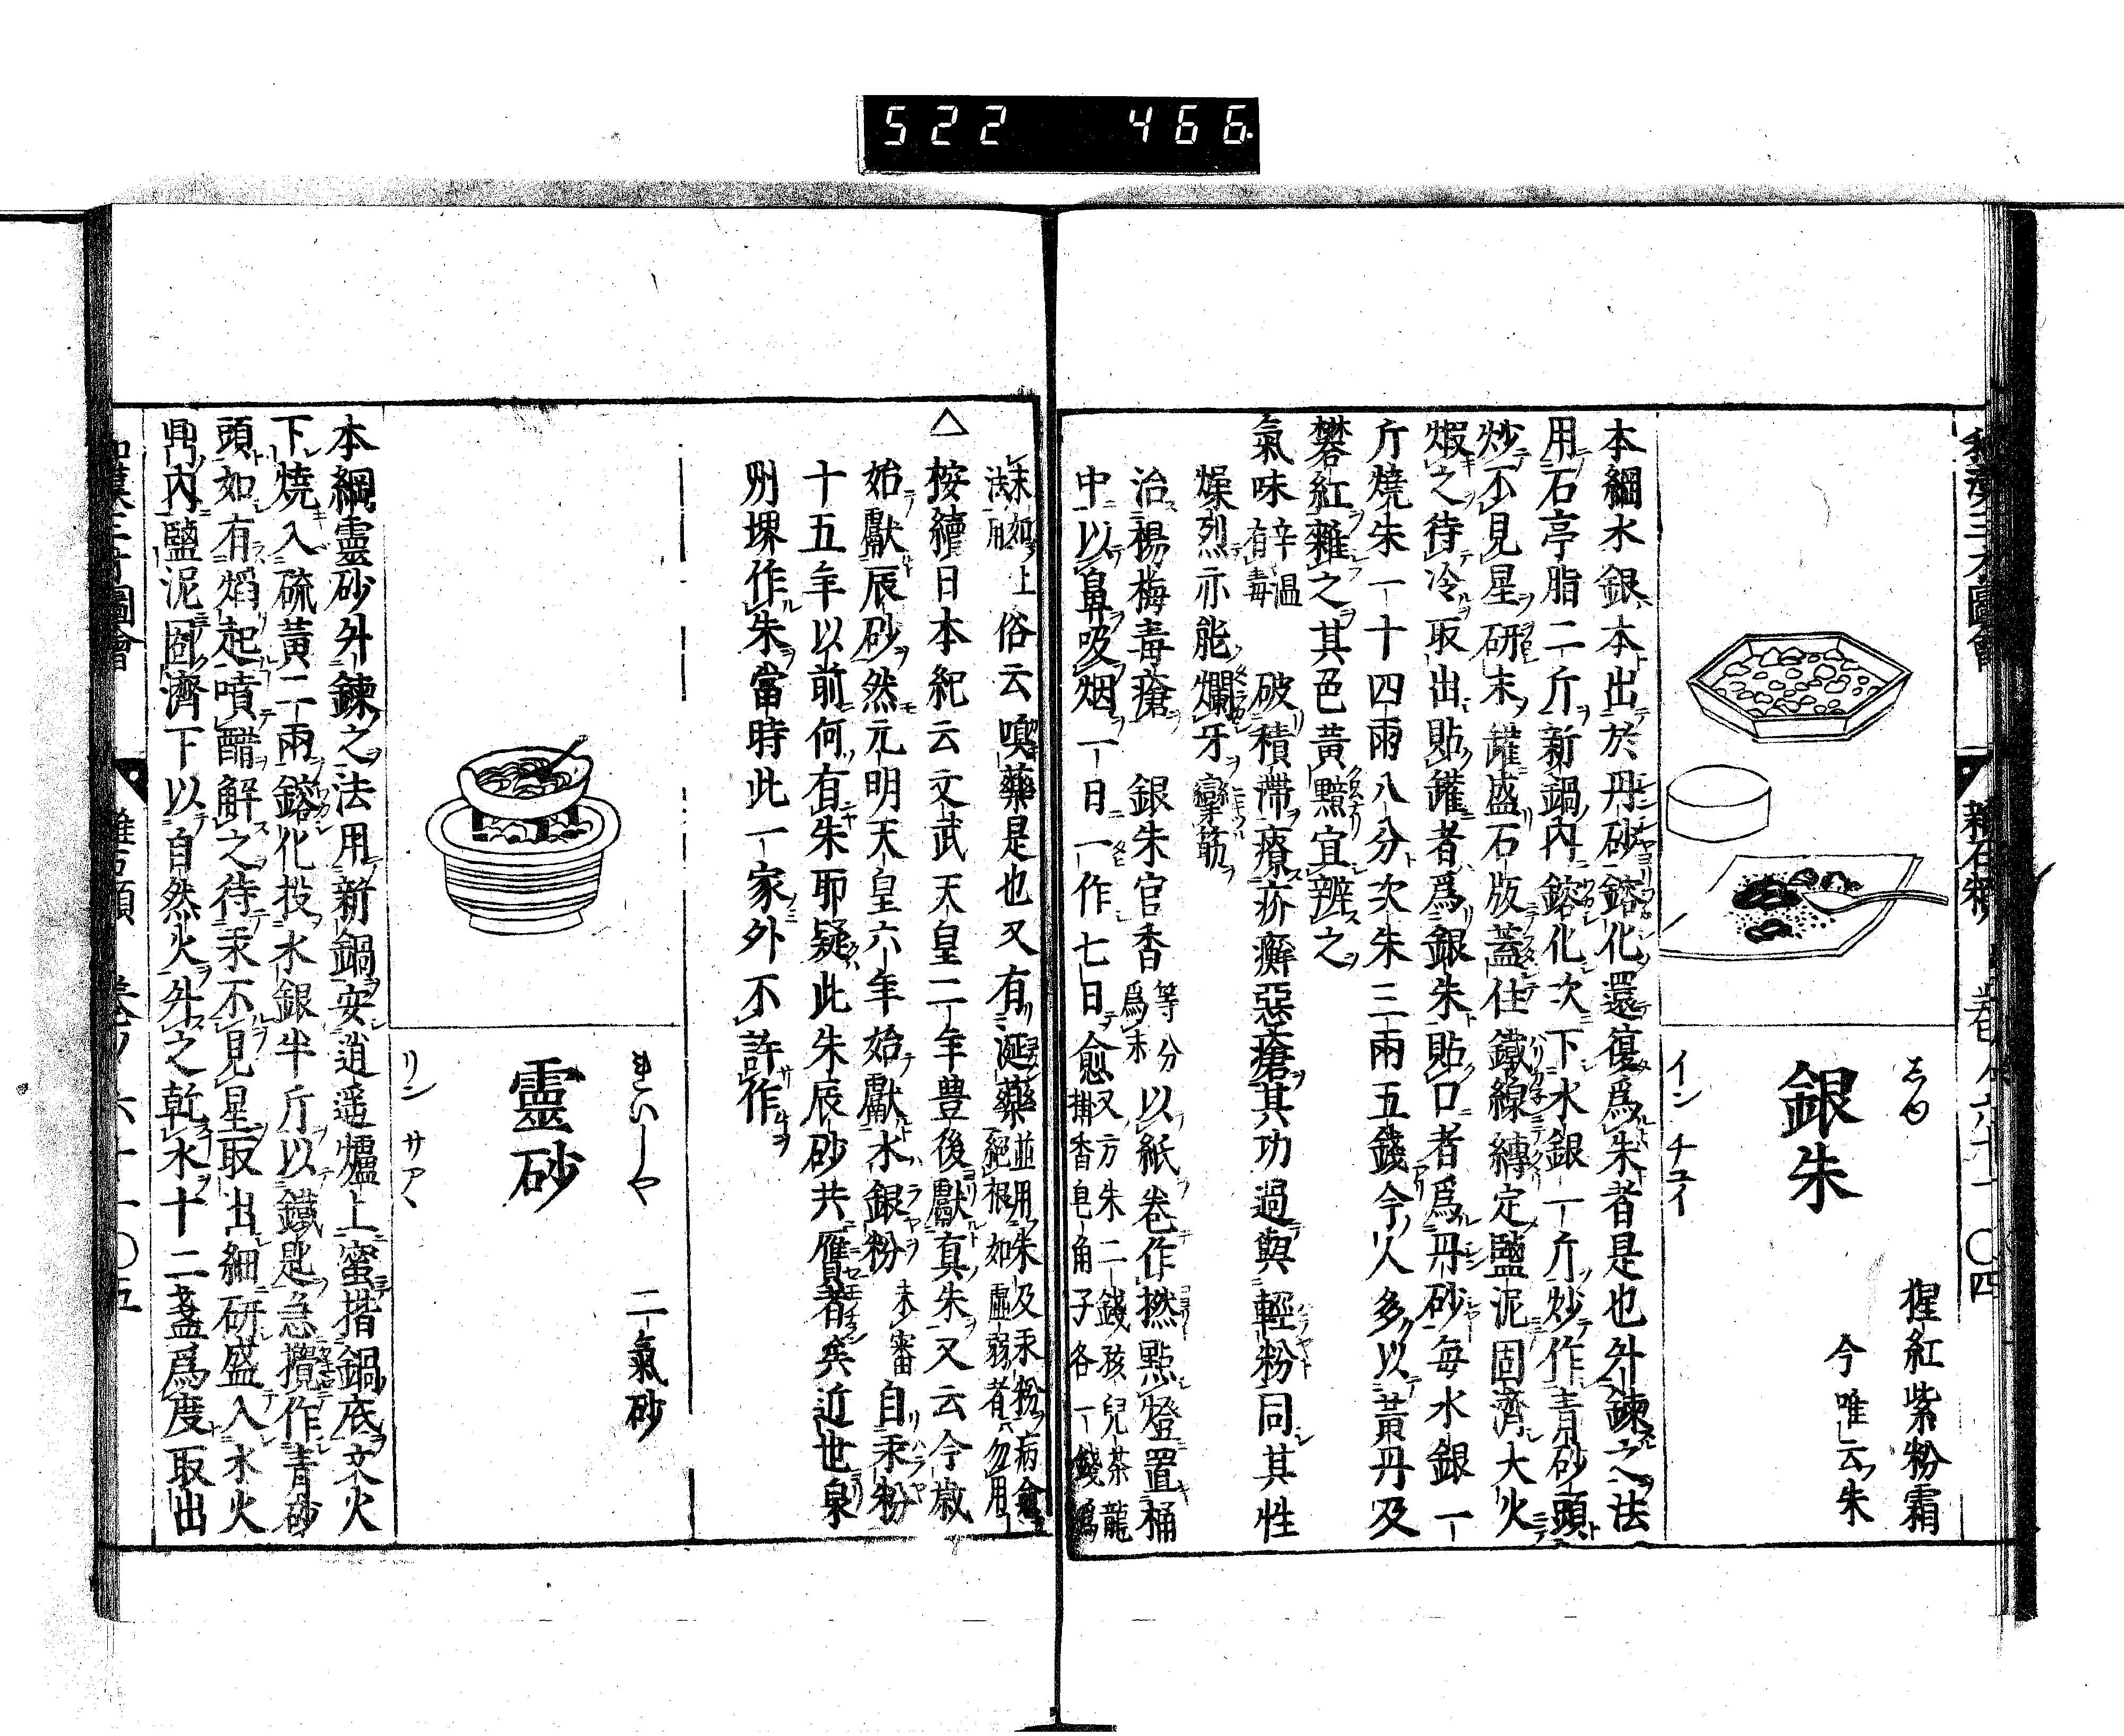 522 466
和漢三才圖會 雜石類 卷ノ六十一 〇四
銀朱
イン チユイ
猩紅 紫粉霜
今唯云朱
本綱水銀本出於丹砂鎔化還復爲朱者是也外鍊之法
用石亭脂二斤新鍋內鎔化次下水銀一斤炒作青砂頭
炒不見星研末罐盛石版蓋住鐵線縛定鹽泥固濟大火
煆之待冷取出貼罐者爲銀朱貼口者爲丹砂每水銀一
斤燒朱一十四兩八分次朱三兩五錢今人多以黃丹及
礬紅雜之其色黃黯宜辨之
氣味 辛温有毒 破積滯療疥癬惡瘡其功過與輕粉同其性
燥烈亦能爛牙攣筋
治楊梅毒瘡 銀朱官香 等分爲末 以紙卷作撚點燈置桶
中以鼻吸烟一日一作七日愈 又方朱二錢孩兒茶龍掛香皂角子各一錢爲
末如上法用 俗云嗅藥是也又有涎藥 並用朱及汞粉病
絕根如虛弱者勿用
△按續日本紀云文武天皇二年豐後獻真朱又云今一
始獻辰砂然元明天皇六年始獻水銀粉 未審 自汞粉
十五年以前何有朱耶疑此朱辰砂共贋者矣近世泉
州堺作朱當時此一家外不許作
靈砂
リン サアヽ
二氣砂
本綱靈砂外鍊之法用新鍋安逍遥爐上蜜揩鍋底文火
下燒入硫黃二兩鎔化投水銀半斤以鐵匙急攪作青砂
頭如有熖起噴醋解之待汞不見星取出細研盛入水火
鼎內鹽泥固濟下以自然火升之乾水十二盞爲度取出
和漢三才圖會 雜石類 卷ノ六十一 〇五